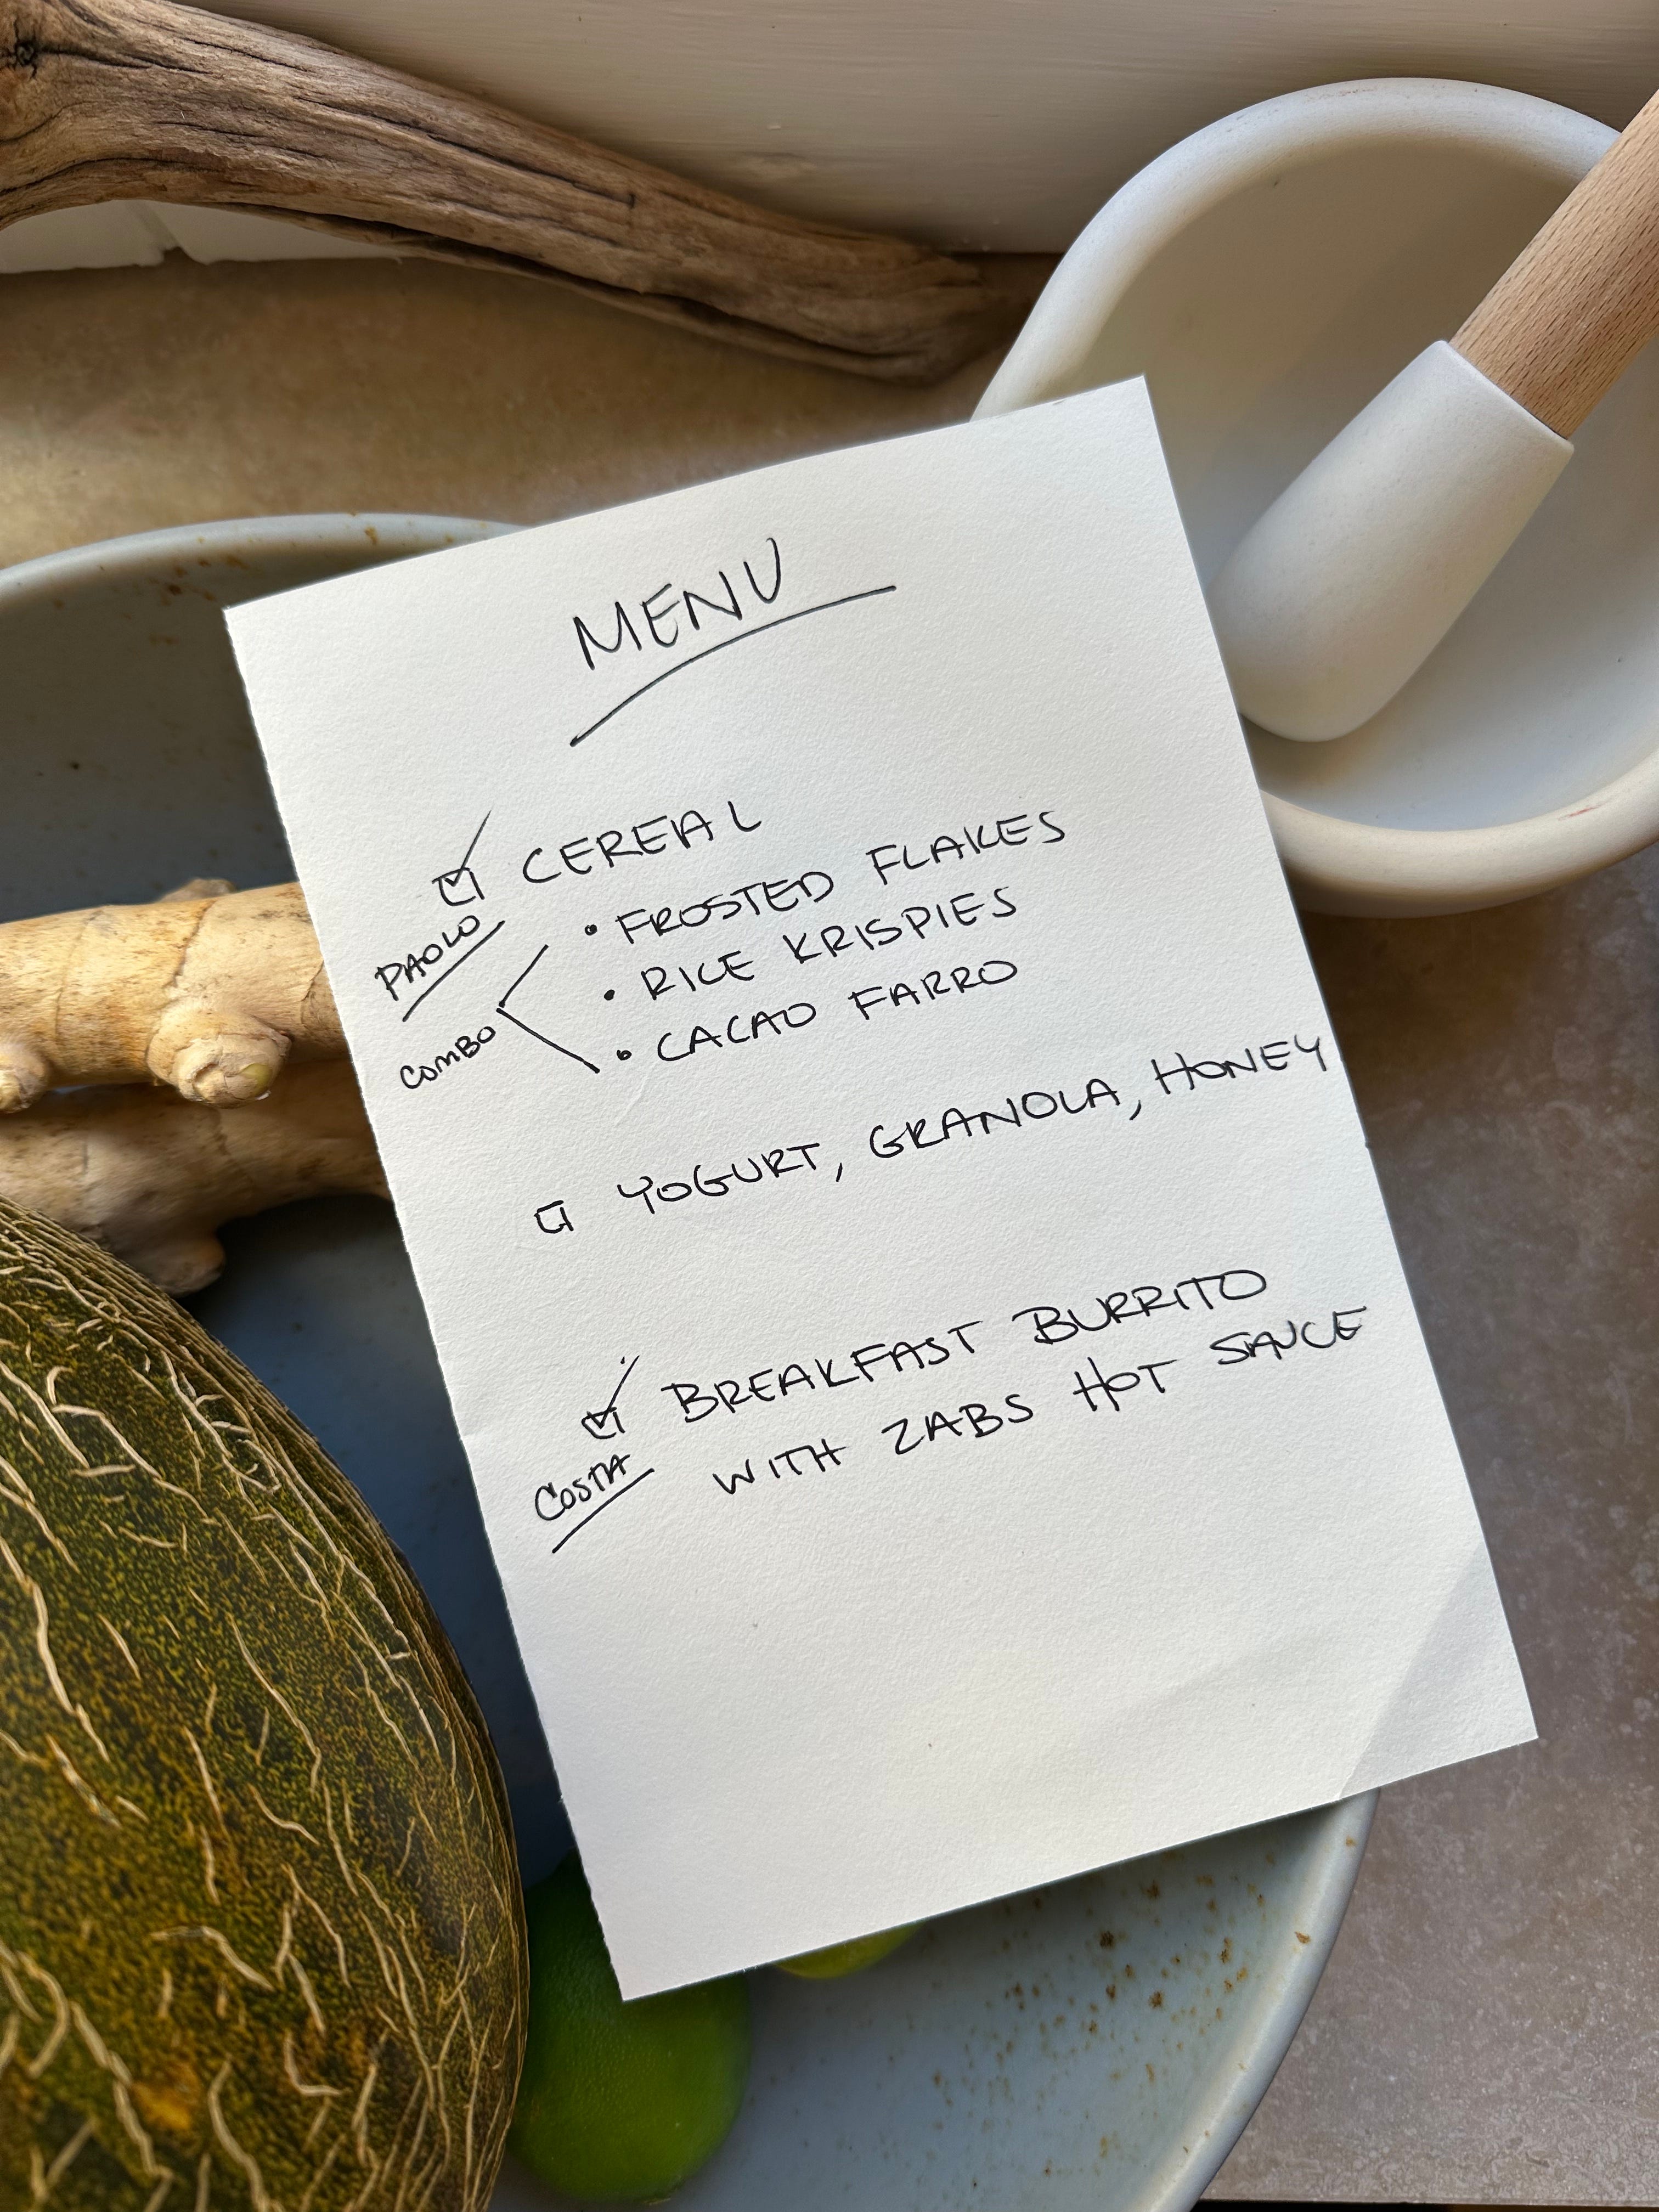 MENU
☑ CEREAL
PAOLO
• FROSTED FLAKES
• RICE KRISPIES
COMBO
• CACAO FARRO
☐ YOGURT, GRANOLA, HONEY
☑ BREAKFAST BURRITO
COSTA
WITH ZABS HOT SAUCE